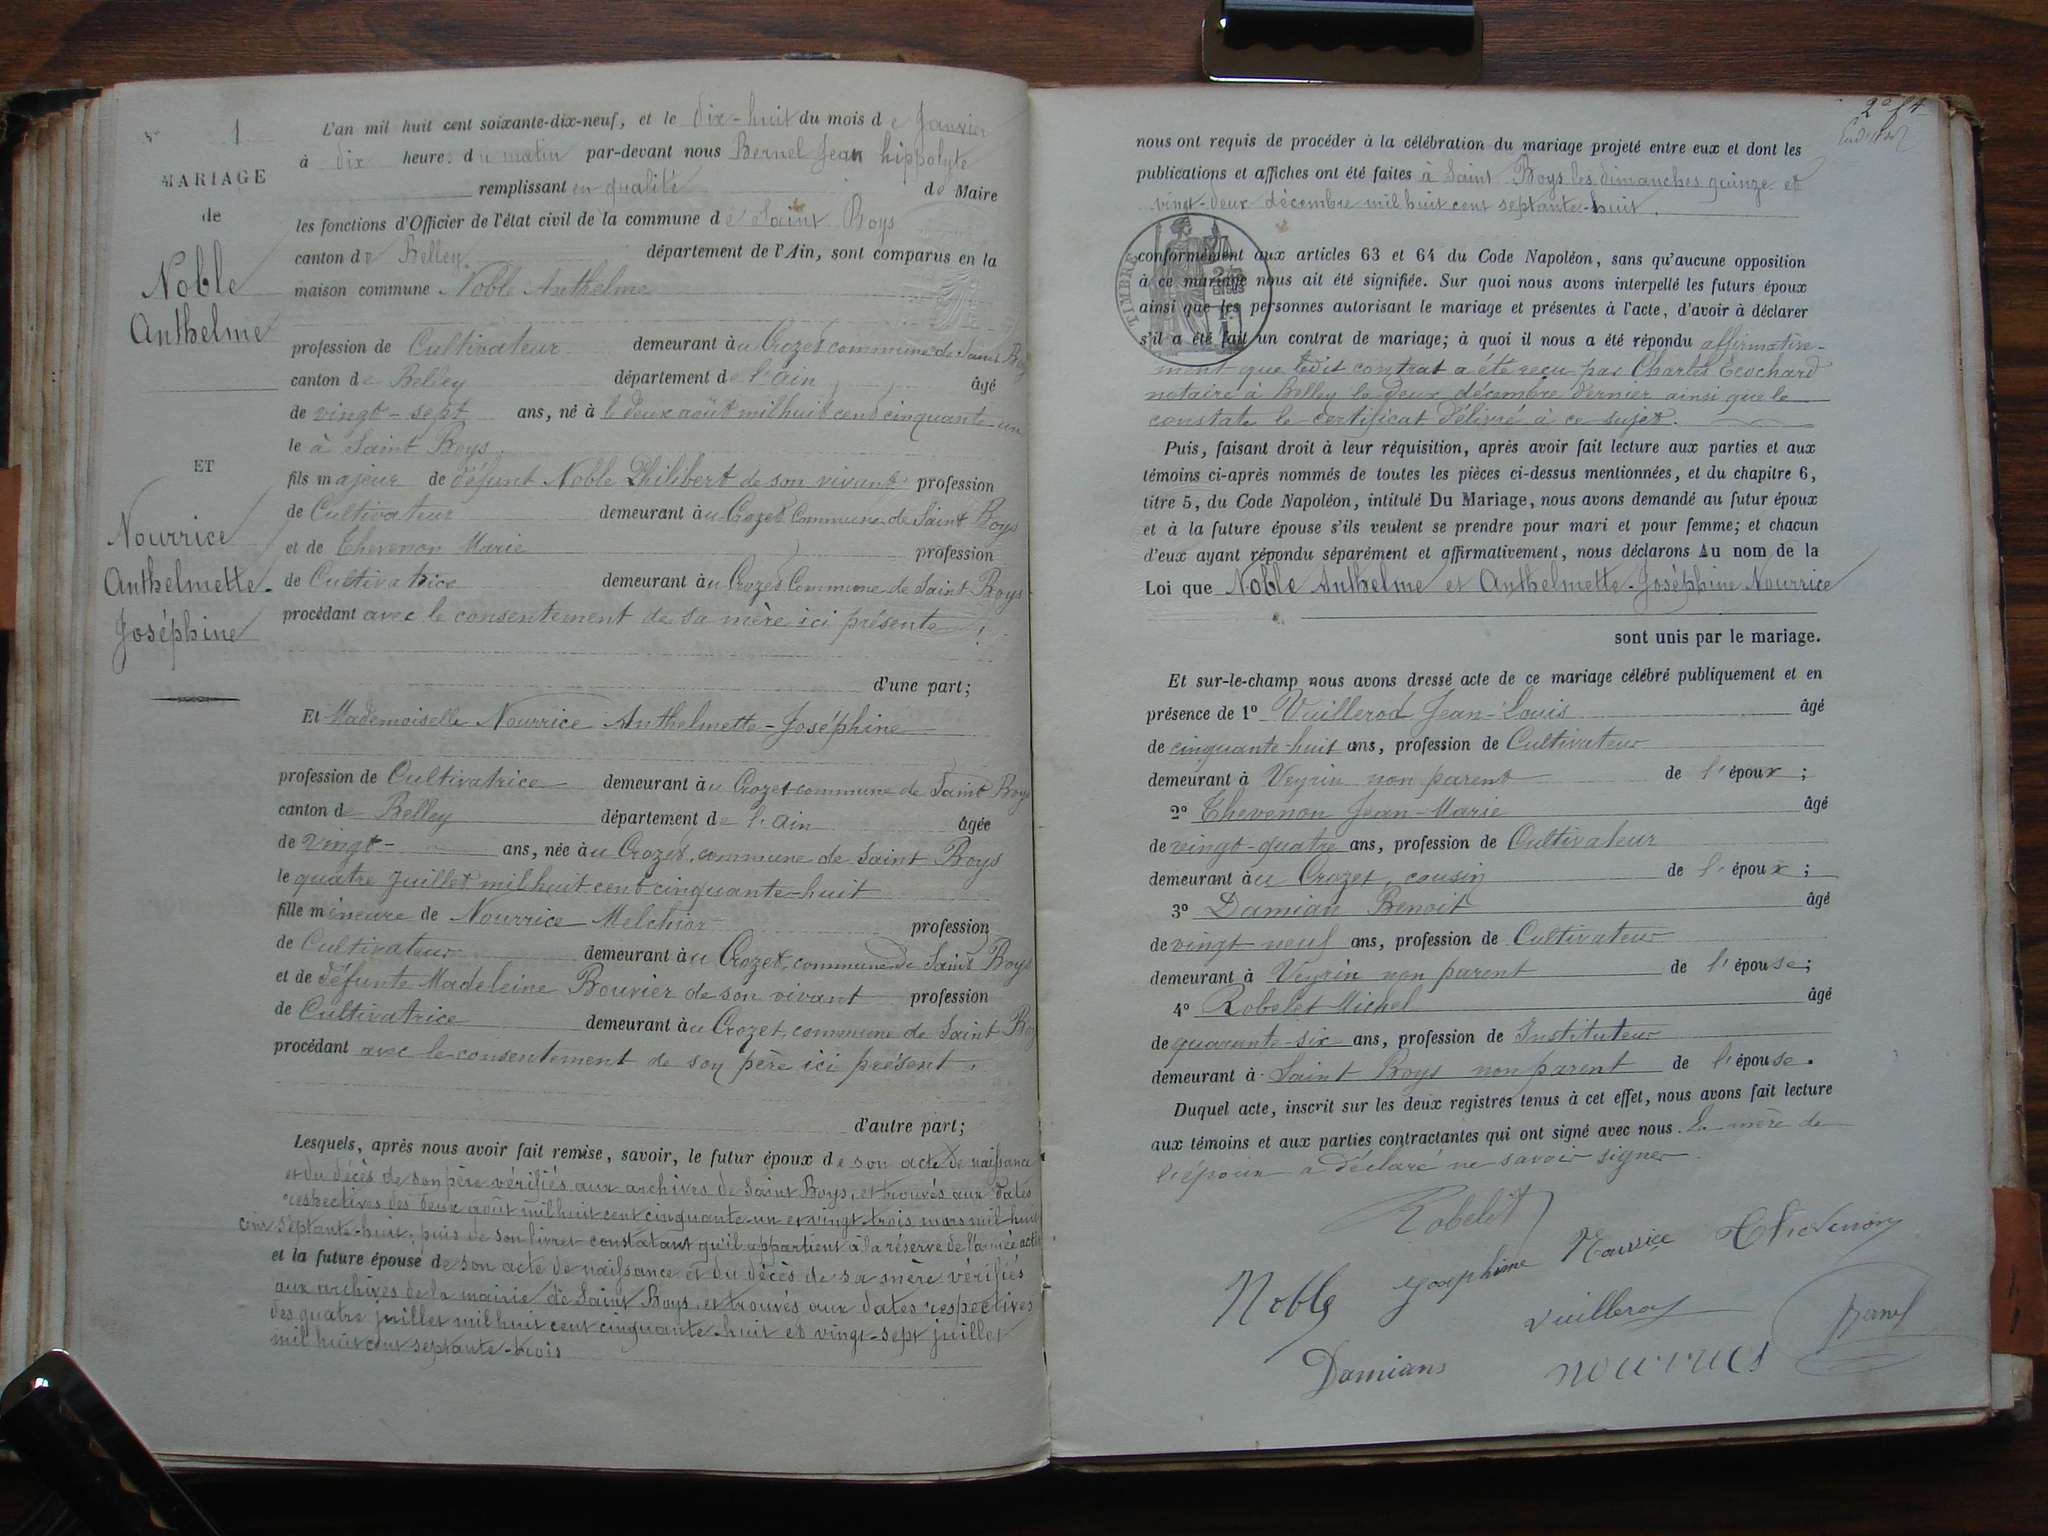 1
MARIAGE
de
Noble
Anthelme
ET
Nourrice
Anthelmette-
Joséphine
L'an mil huit cent soixante-dix-neuf, et le dix-huit du mois de Janvier
à dix heures du matin par-devant nous Bernel Jean hippolyte
remplissant en qualité de Maire
les fonctions d'Officier de l'état civil de la commune de Saint Boys
canton de Belley département de l'Ain, sont comparus en la
maison commune Noble Anthelme
profession de Cultivateur demeurant au Crozet commune de Saint Boys
canton de Belley département de l'Ain âgé
de vingt-sept ans, né à le deux août mil huit cent cinquante un
le à Saint Boys
fils majeur de défunt Noble Philibert de son vivant profession
de Cultivateur demeurant au Crozet Commune de Saint Boys
et de Thevenon Marie profession
de Cultivatrice demeurant au Crozet Commune de Saint Boys
procédant avec le consentement de sa mère ici présente
d'une part;
Et Mademoiselle Nourrice Anthelmette-Joséphine
profession de Cultivatrice demeurant au Crozet commune de Saint Boys
canton de Belley département de l'Ain âgée
de vingt- ans, née au Crozet, commune de Saint Boys
le quatre Juillet mil huit cent cinquante-huit
fille mineure de Nourrice Melchior profession
de Cultivateur demeurant au Crozet, commune de Saint Boys
et de défunte Madeleine Bouvier de son vivant profession
de Cultivatrice demeurant au Crozet, commune de Saint Boy
procédant avec le consentement de son père ici présent.
d'autre part;
Lesquels, après nous avoir fait remise, savoir, le futur époux de son acte de naissance
et du décès de son père vérifiés aux archives de Saint Boys, et trouvés aux dates
respectives des deux août mil huit cent cinquante-un et vingt-trois mars mil huit
cent septante-huit, puis de son livret constatant qu'il appartient à la réserve de l'armée acti
et la future épouse de son acte de naissance et du décès de sa mère vérifiés
aux archives de la mairie de Saint Boys et trouvés aux dates respectives
des quatre juillet mil huit cent cinquante-huit et vingt-sept juillet
mil huit cent septante-trois
nous ont requis de procéder à la célébration du mariage projeté entre eux et dont les
publications et affiches ont été faites à Saint Boys les dimanches quinze et
vingt-deux décembre mil huit cent septante-huit.
TIMBRE
conformément aux articles 63 et 64 du Code Napoléon, sans qu'aucune opposition
à ce mariage nous ait été signifiée. Sur quoi nous avons interpellé les futurs époux
ainsi que les personnes autorisant le mariage et présentes à l'acte, d'avoir à déclarer
s'il a été fait un contrat de mariage; à quoi il nous a été répondu affirmative-
ment que ledit contrat a été reçu par Charles Ecochard
notaire à Belley le deux décembre dernier ainsi que le
constate le certificat délivré à ce sujet.
Puis, faisant droit à leur réquisition, après avoir fait lecture aux parties et aux
témoins ci-après nommés de toutes les pièces ci-dessus mentionnées, et du chapitre 6,
titre 5, du Code Napoléon, intitulé Du Mariage, nous avons demandé au futur époux
et à la future épouse s'ils veulent se prendre pour mari et pour femme; et chacun
d'eux ayant répondu séparément et affirmativement, nous déclarons Au nom de la
Loi que Noble Anthelme et Anthelmette-Joséphine Nourrice
sont unis par le mariage.
Et sur-le-champ nous avons dressé acte de ce mariage célébré publiquement et en
présence de 1° Vuillerod Jean-Louis âgé
de cinquante-huit ans, profession de Cultivateur
demeurant à Veyrin non parent de l'époux;
2° Thevenon Jean-Marie âgé
de vingt-quatre ans, profession de Cultivateur
demeurant au Crozet, cousin de l'époux;
3° Damian Benoit âgé
de vingt neuf ans, profession de Cultivateur
demeurant à Veyrin non parent de l'épouse;
4° Robelet Michel âgé
de quarante-six ans, profession de Instituteur
demeurant à Saint Boys non parent de l'épouse.
Duquel acte, inscrit sur les deux registres tenus à cet effet, nous avons fait lecture
aux témoins et aux parties contractantes qui ont signé avec nous. La mère de
l'époux a déclaré ne savoir signer.
Robelet
Noble Joséphine Nourrice Thevenon
Vuillerod
Damians Nourrices Bernel